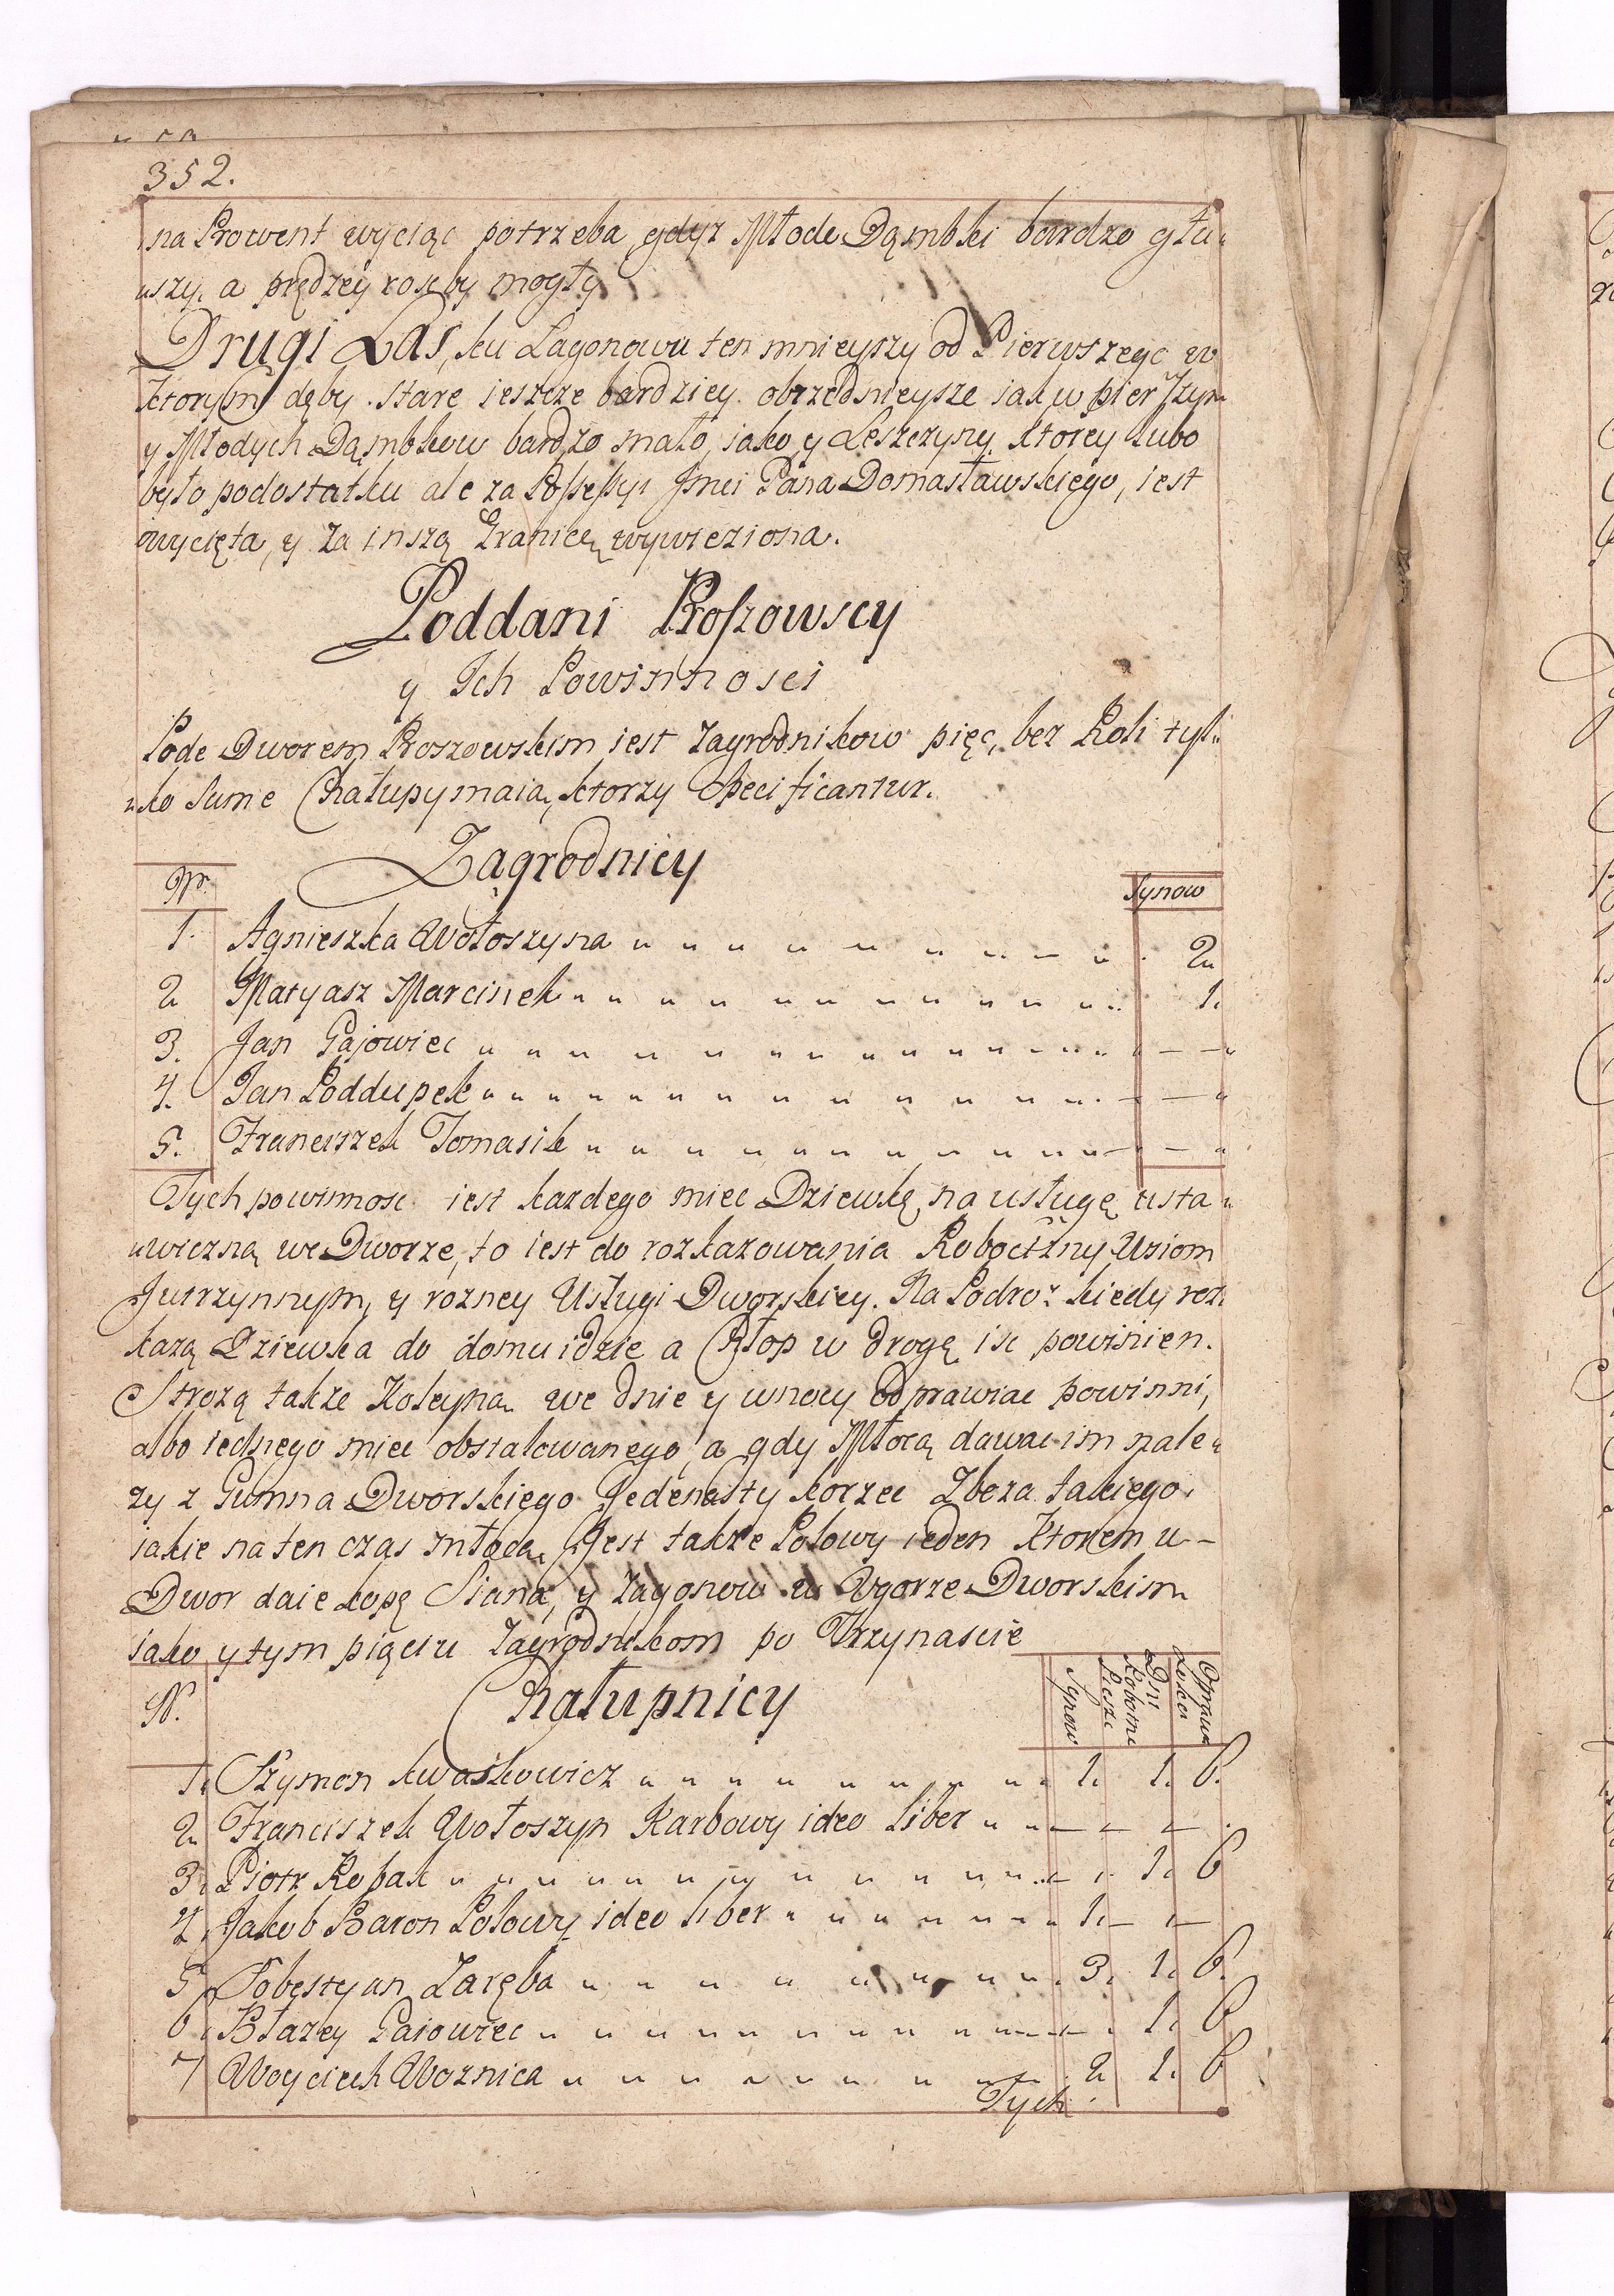 352.
na Prowent wyciąc potrzeba, gdyz Młode Dąmbki bardzo głu„
„szy, a prędzey rosc by mogły
Drugi Las, ku Lagonowu ten mnieyszy od Pierwszego w
ktorym dęby stare ieszcze bardziey obrzednieysze iak w pierszym
y Młodych Dąmbkow bardzo mało, iako y Leszczyny, ktorey lubo
było podostatku ale za Possessyi Jmci Pana Domasławskiego, iest
wycięta, y za inszą Granicę wywieziona.
Poddani Proszowscy
y Ich Powinnosci
Pode Dworem Proszowskim iest Zagrodnikow pięc, bez Roli tyl„
„ko same Chałupy maią, ktorzy Specificantur.
Zagrodnicy
Nr. Synow
1. Agnieszka Wołoszyna 2
2 Matyasz Marcinek 1.
3. Jan Gajowiec —
4. Jan Poddupek —
5. Franciszek Tomasik —
Tych powinnosc iest kazdego miec Dziewkę, na usługę usta„
„wiczną we Dworze, to iest do rozkazowania Roboczny Uziom
Jutrzynnym, y rozney Usługi Dworskiey. Na Podroz kiedy roz„
kazą Dziewka do domu idzie a Chłop w drogę isc powinien.
Strozą takze Koleyna we dnie y wnocy odprawiac powinni,
albo iednego miec obstalowanego, a gdy Młocą dawac im nale„
zy z Gumna Dworskiego Jedenasty korzec Zboza takiego
iakie na ten czas młocą. Jest takze Polowy ieden ktoremu
Dwor daie kopę Siana, y zagonow w Ugorze Dworskim
iako y tym pięciu Zagrodnikom po Trzynascie
N. Chałupnicy Synow Dni Robotne Piesze Oprawa Lokci
1. Szymon Kwaskowicz 1. 1. 6.
2 Franciszek Wołoszyn Karbowy ideo liber — — —
3. Piotr Robak — 1. 6
4 Jakob Baron Polowy ideo liber 1. — —
5 Sobestyan Zaręba 3. 1. 6.
6 Błazey Gaiowiec — 1. 6
7 Woyciech Woznica 2 1. 6
Tych